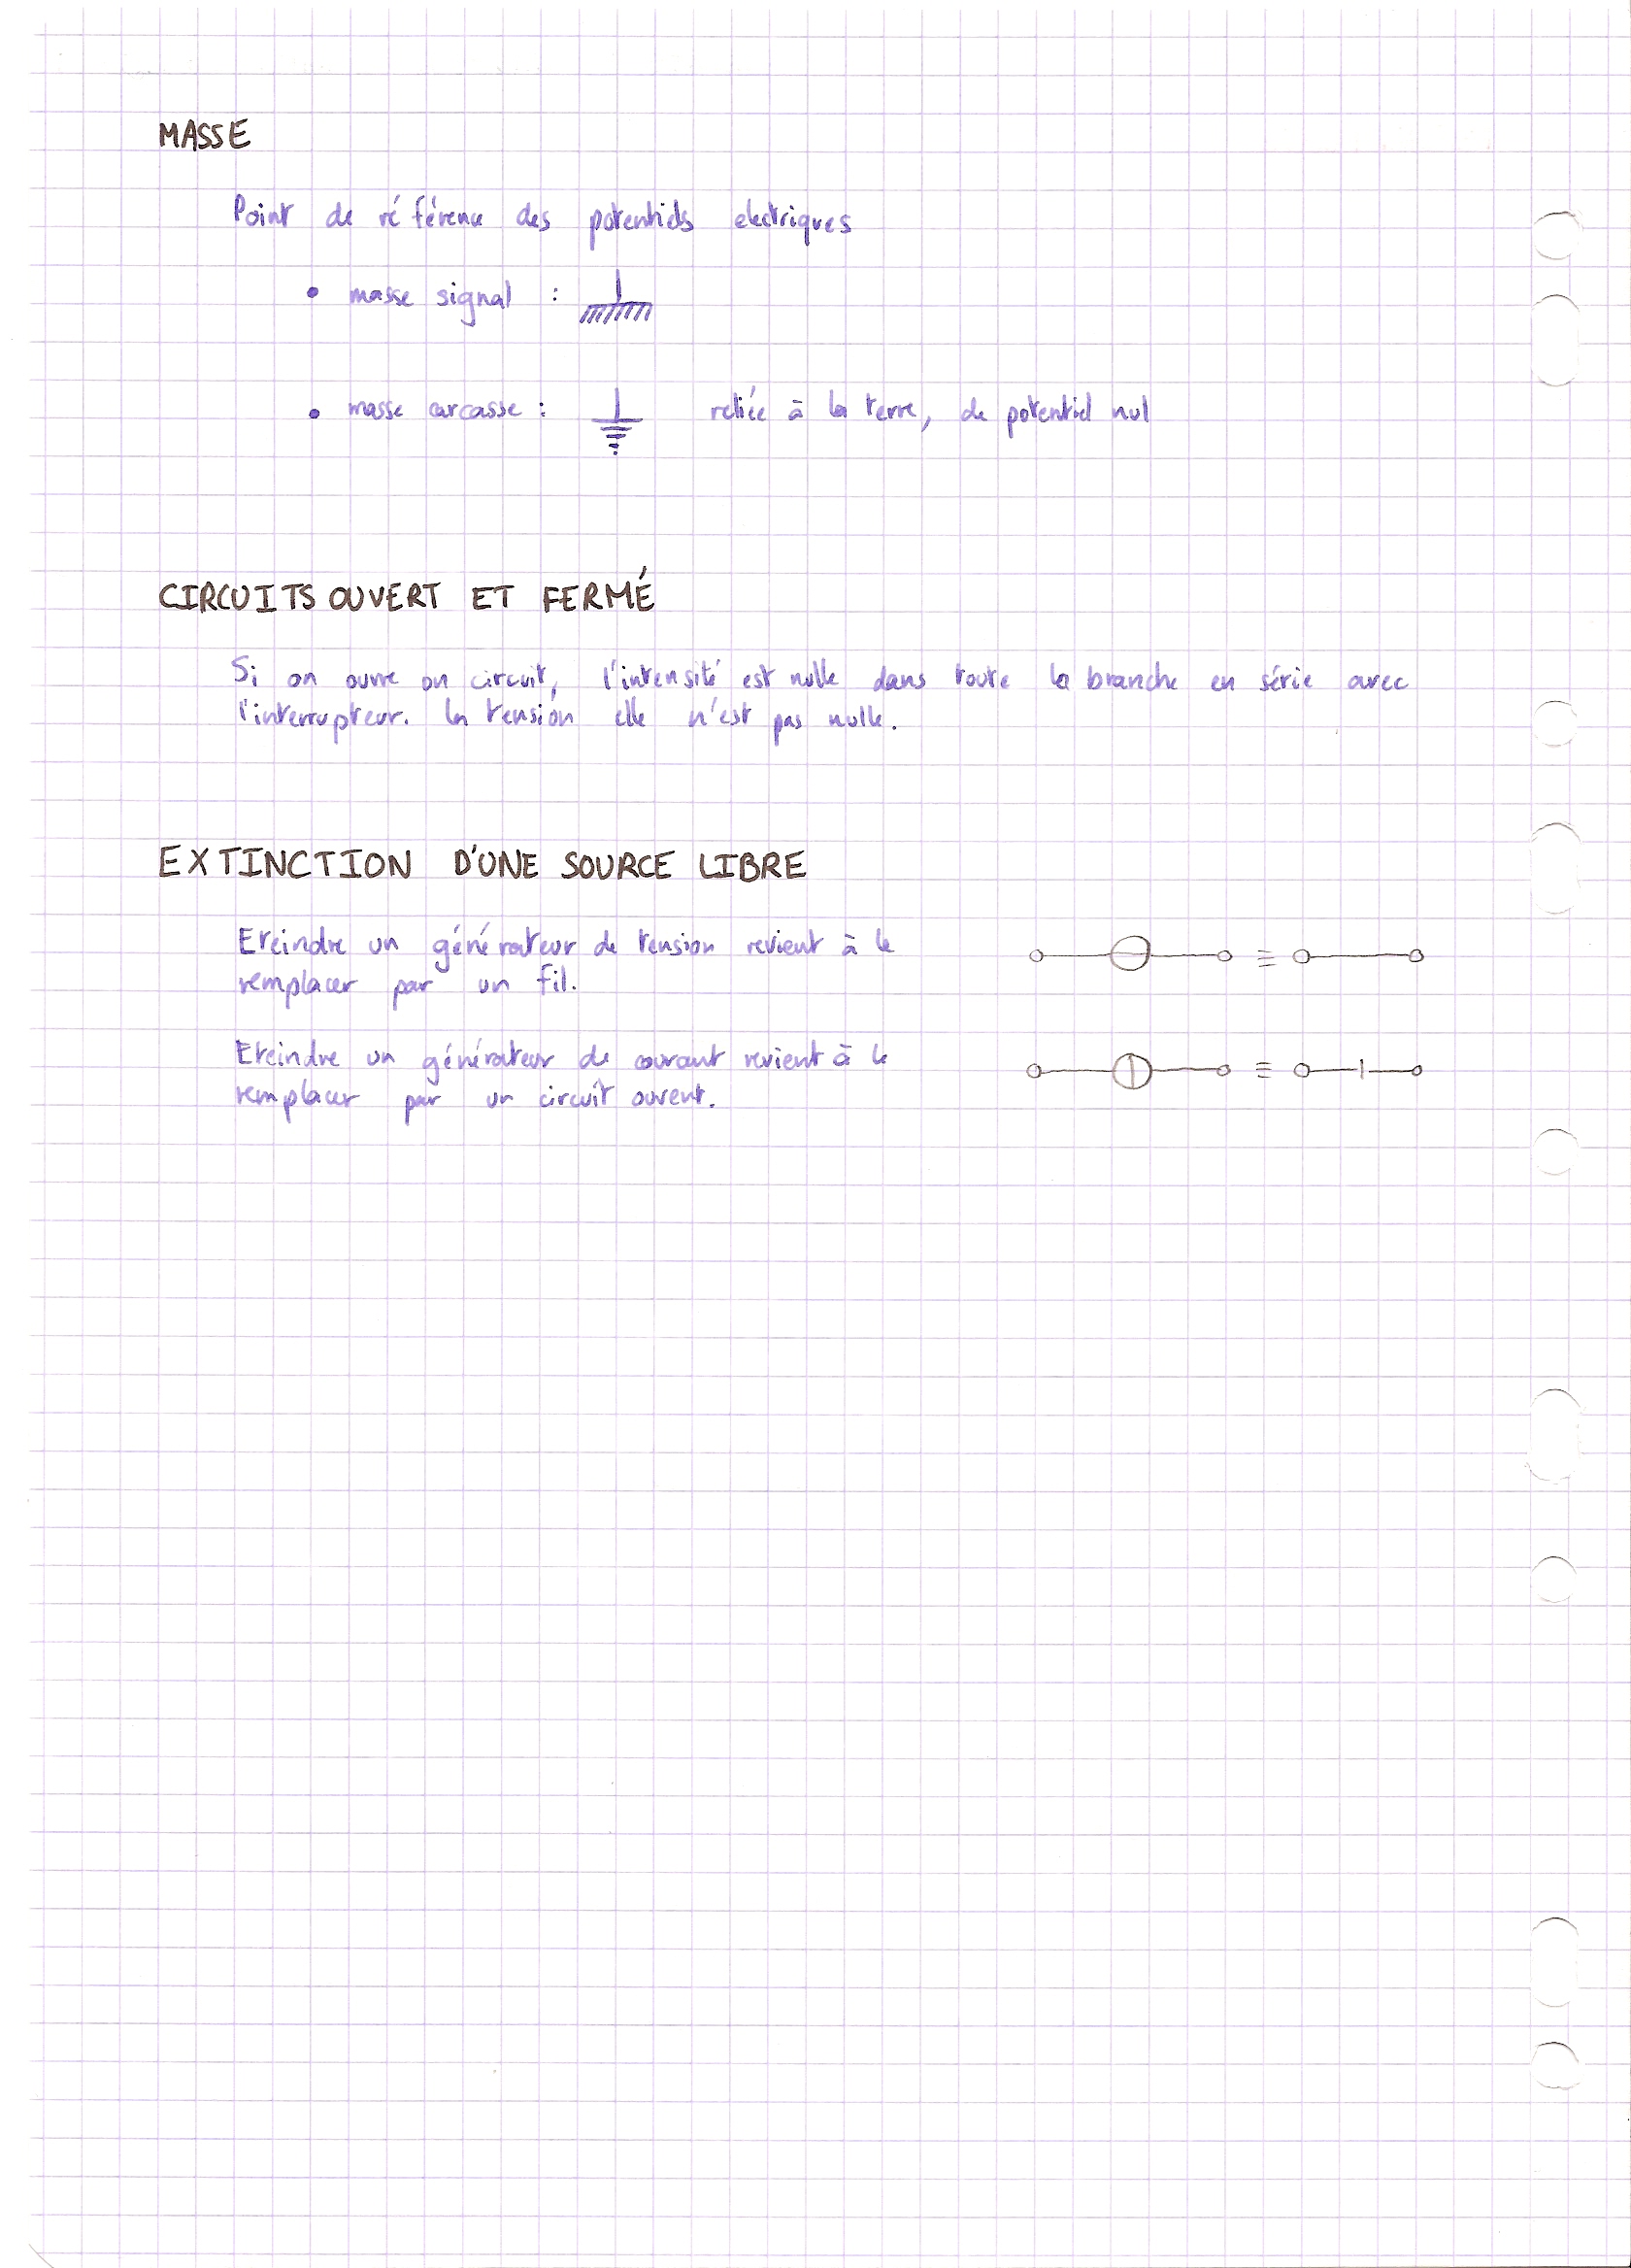 MASSE
Point de référence des potentiels electriques
• masse signal :
• masse carcasse : reliée à la terre, de potentiel nul
CIRCUITS OUVERT ET FERMÉ
Si on ouvre un circuit, l'intensité est nulle dans toute la branche en série avec
l'interrupteur. la tension elle n'est pas nulle.
EXTINCTION D'UNE SOURCE LIBRE
Eteindre un générateur de tension revient à le
remplacer par un fil.
≡
Eteindre un générateur de courant revient à le
remplacer par un circuit ouvert.
≡